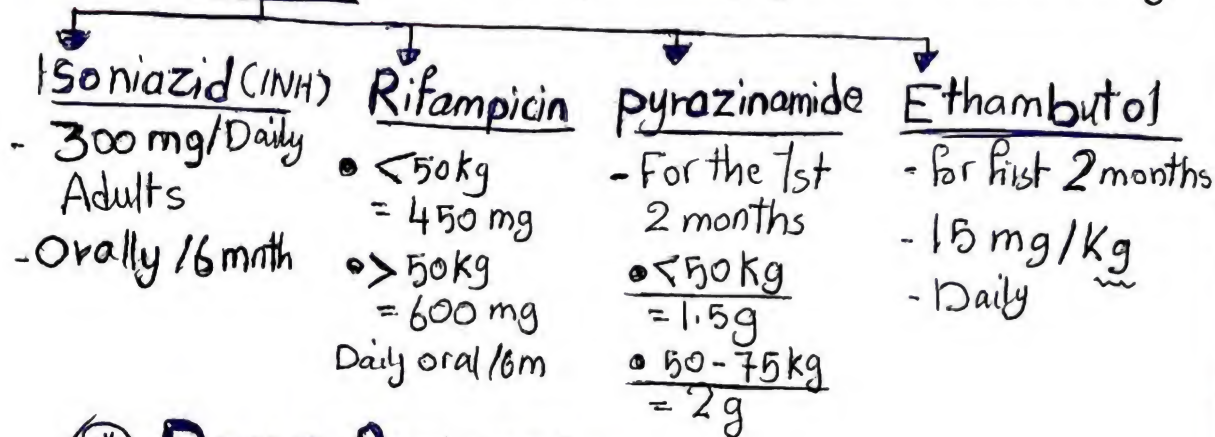 Isoniazid (INH)
- 300 mg/Daily
Adults
- Orally /6 mnth
Rifampicin
• <50kg
= 450 mg
• > 50kg
= 600 mg
Daily oral /6m
pyrazinamide
- For the 1st
2 months
• <50 kg
= 1.5g
• 50-75kg
= 2g
Ethambutol
- for first 2 months
- 15 mg/Kg
- Daily